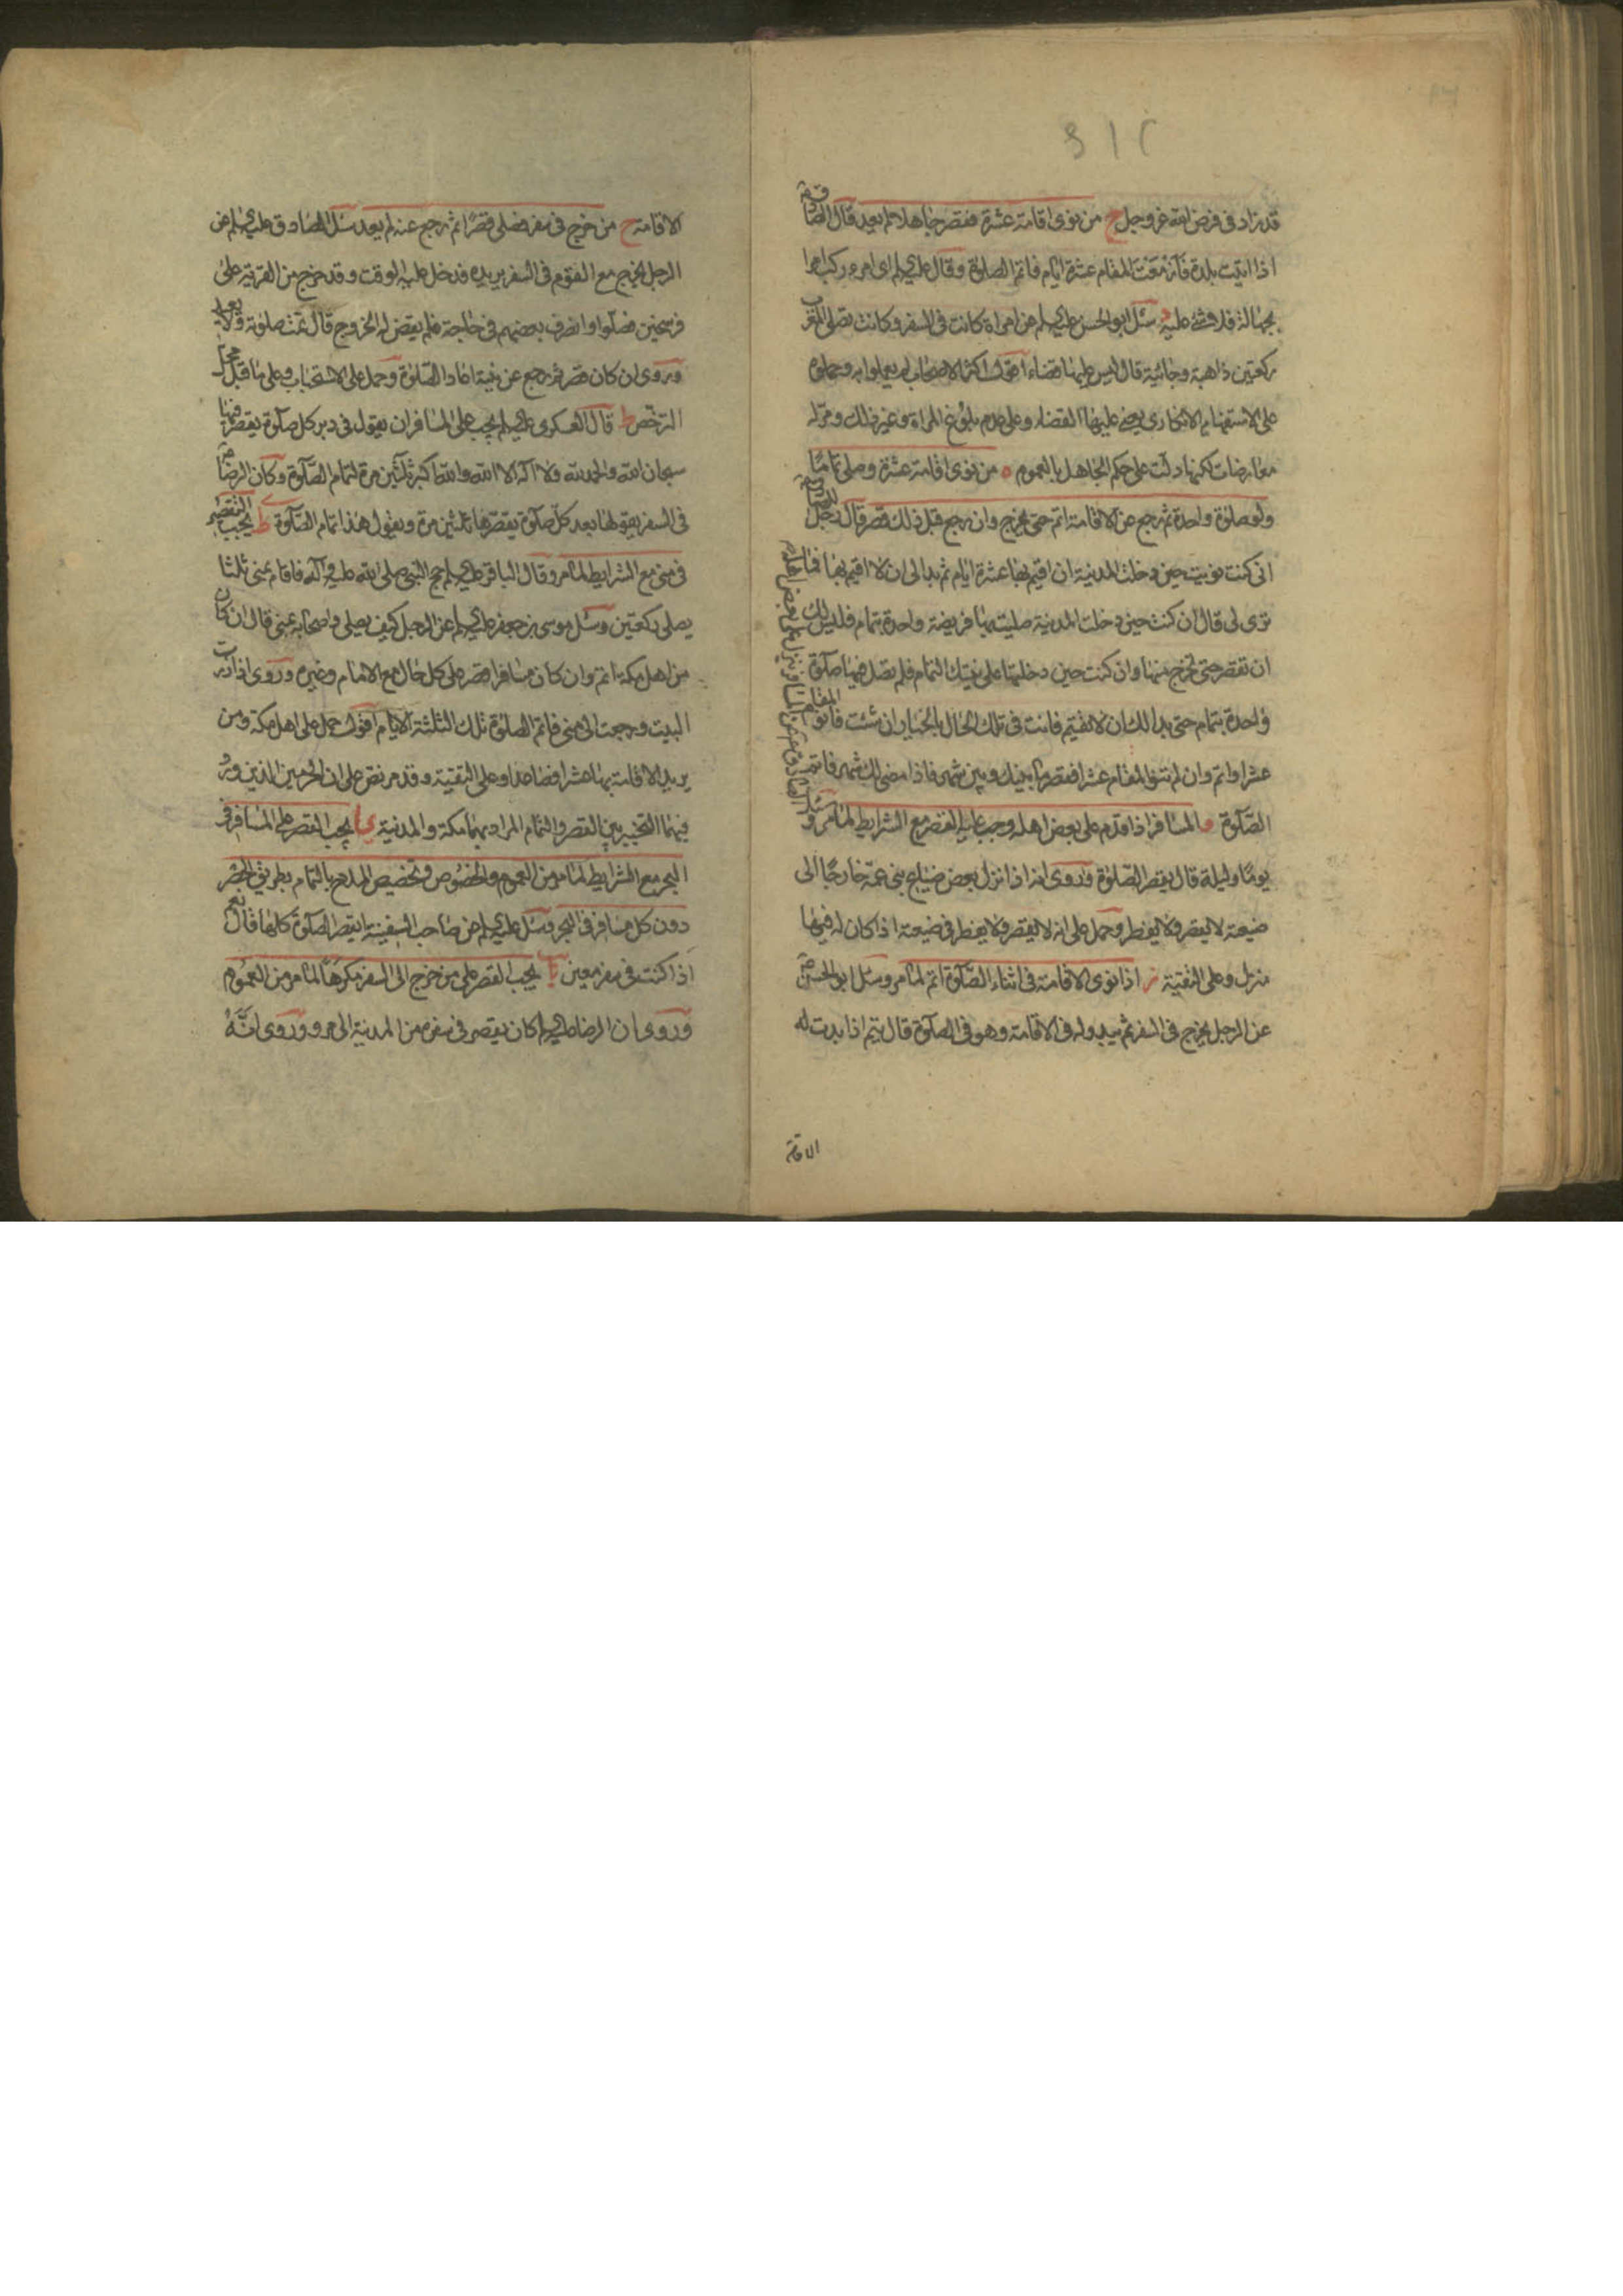 قد زاد فى فرض الله عز وجل ج من نوى اقامة عشرة فقصر جاهلا لم يعد قال الصادق ع
اذا اتيت بلدة فازمعت المقام عشرة ايام فاتم الصلوة وقال عليه السلم اى امرء ركب امرا
بجهالة فلا شئ عليه د سئل ابو الحسن عليه السلم عن امراة كانت فى السفر وكانت تصلى المغرب
ركعتين ذاهبة وجائية قال ليس عليها قضاء اقول اكثر الاصحاب لم يعملوا به وحملوه
على الاستفهام الانكارى يعنى عليها القضاء وعلى عدم بلوغ المراة وغير ذلك ومر له
معارضات لكنها دلت على حكم الجاهل بالعموم ه من نوى اقامة عشرة وصلى تماما
ولو صلوة واحدة ثم رجع عن الاقامة اتم حتى يخرج وان رجع قبل ذلك قصر قال رجل للصادق ع
انى كنت نويت حين دخلت المدينة ان اقيم بها عشرة ايام ثم بدا لى ان لا اقيم بها فما
ترى لى قال ان كنت حين دخلت المدينة صليت بها فريضة واحدة بتمام فليس لك
ان تقصر حتى تخرج منها وان كنت حين دخلتها على نيتك التمام فلم تصل فيها صلوة
واحدة بتمام حتى بدا لك ان لا تقيم فانت فى تلك الحال بالخيار ان شئت فانو المقام
عشرا واتم وان لم تنو المقام عشرا فقصر ما بينك وبين شهر فاذا مضى لك شهر فاتم
الصلوة و المسافر اذا قدم على بعض اهله وجب عليه القصر مع الشرايط لما مر و
سئل الصادق ع عن المسافر ينزل على بعض اهله
يوما وليلة قال يقصر الصلوة وروى انه اذا نزل بعض ضياع بنى عمه خارجا الى
ضيعته لا يقصر ولا يفطر وحمل على انه لا يقصر ولا يفطر فى ضيعته اذا كان له فيها
منزل وعلى التقية ز اذا نوى الاقامة فى اثناء الصلوة اتم لما مر وسئل ابو الحسن ع
عن الرجل يخرج فى السفر ثم يبدو له فى الاقامة وهو فى الصلوة قال يتم اذا بدت له
الاقامة
الاقامة ح من خرج فى سفر فصلى قصرا ثم رجع عنه لم يعد سئل الصادق عليه السلم عن
الرجل يخرج مع القوم فى السفر يريده فدخل عليه الوقت وقد خرج من القرية على
فرسخين فصلوا وانصرف بعضهم فى حاجة فلم يقض له الخروج قال تمت صلوته ولا يعيد
وروى ان كان قصر ثم رجع عن نيته اعاد الصلوة وحمل على الاستحباب وعلى ما قبل محل
الترخص ط قال العسكرى عليه السلم يجب على المسافر ان يقول فى دبر كل صلوة يقصر فيها
سبحان الله والحمد لله ولا اله الا الله والله اكبر ثلثين مرة لتمام الصلوة وكان الرضا ع
فى السفر يقولها بعد كل صلوة يقصرها ثلثين مرة ويقول هذا تمام الصلوة ى يجب التقصير
فى منى مع الشرايط لما مر وقال الباقر عليه السلم حج النبى صلى الله عليه واله فاقام بمنى ثلثا
يصلى ركعتين وسئل موسى بن جعفر عليه السلم عن الرجل كيف يصلى واصحابه بمنى قال ان كان
من اهل مكة اتم وان كان مسافرا قصر على كل حال مع الامام وغيره وروى اذا زرت
البيت ورجعت الى منى فاتم الصلوة تلك الثلثة الايام اقول حمل على اهل مكة ومن
يريد الاقامة بها عشرا فصاعدا وعلى التقية وقد مر نص على ان الحرمين الذين ورد
فيهما التخيير بين القصر والتمام المراد بهما مكة والمدينة يا يجب القصر على المسافر فى
البحر مع الشرايط لما مر من العموم والخصوص وتخصيص الملاح بالتمام بطريق الحصر
دون كل مسافر فى البحر وسئل عليه السلم عن صاحب السفينة ايقصر الصلوة كلها قال نعم
اذا كنت فى سفر معين يب يجب القصر على من خرج الى السفر مكرها لما مر من العموم
وروى ان الرضا عليه السلم كان يقصر فى سفره من المدينة الى مرو وروى انه